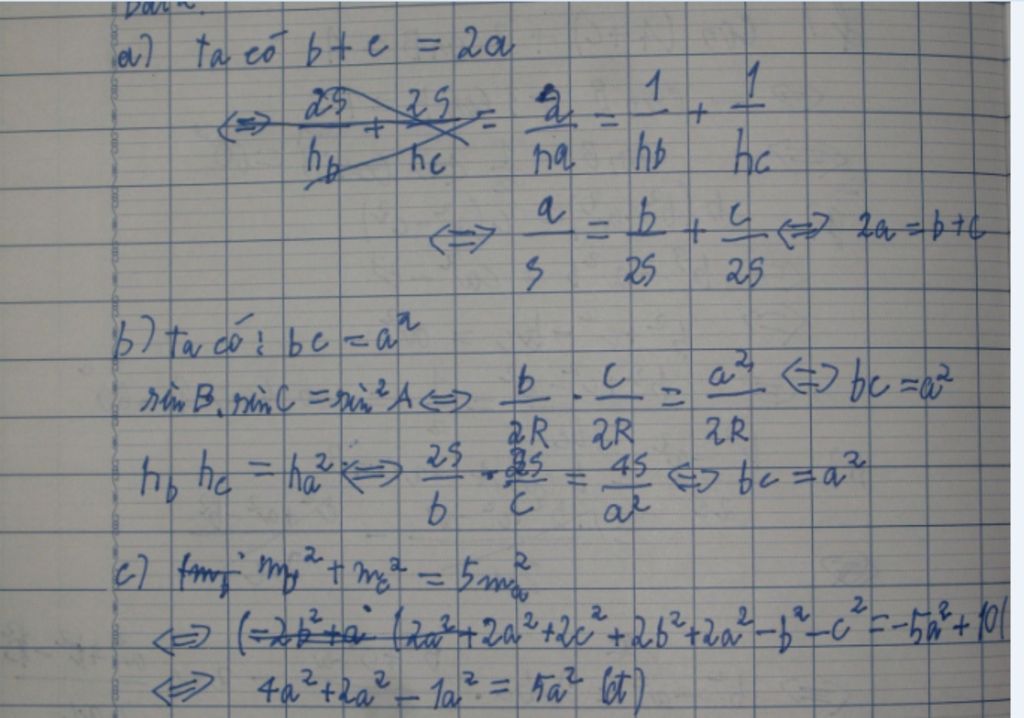 a) ta có b + c = 2a
⇔ 2S/h_b + 2S/h_c = 2/h_a = 1/h_b + 1/h_c
⇔ a/S = b/2S + c/2S ⇔ 2a = b + c
b) ta có : bc = a²
sin B . sin C = sin² A ⇔ b/2R . c/2R = a²/2R ⇔ bc = a²
h_b h_c = h_a² ⇔ 2S/b . 2S/c = 4S/a² ⇔ bc = a²
c) m_b² + m_c² = 5m_a²
⇔ (2a² + 2a² + 2c² + 2b² + 2a² - b² - c² = -5a² + 10(
⇔ 4a² + 2a² - 1a² = 5a² (đt)